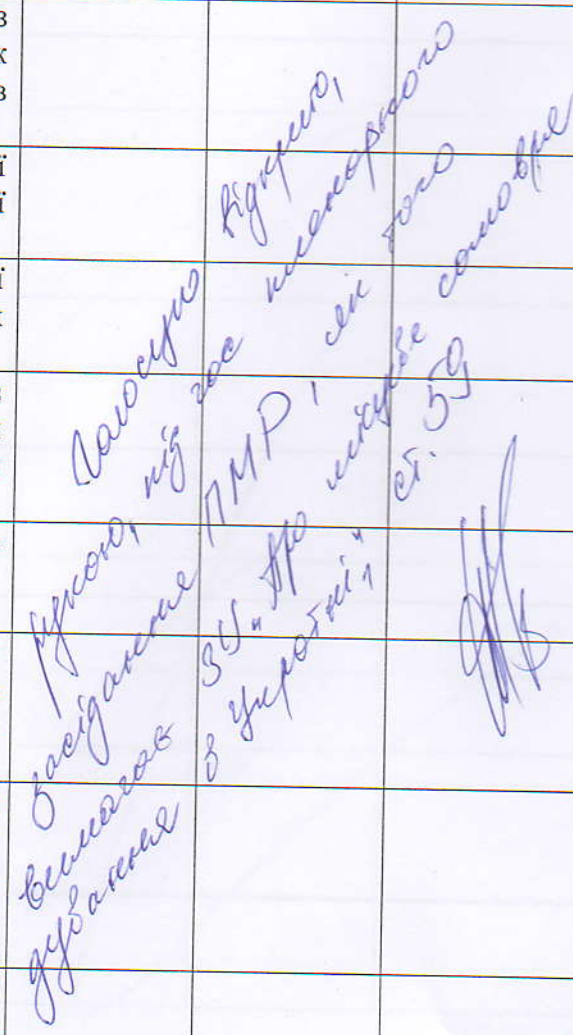 в
к
в
ї
ї
ї
к
Голосую відкрито,
рукою, під час пленарного
засідання ПМР, як того
вимагає ЗУ „Про місцеве самовря
дування в Україні", ст. 59